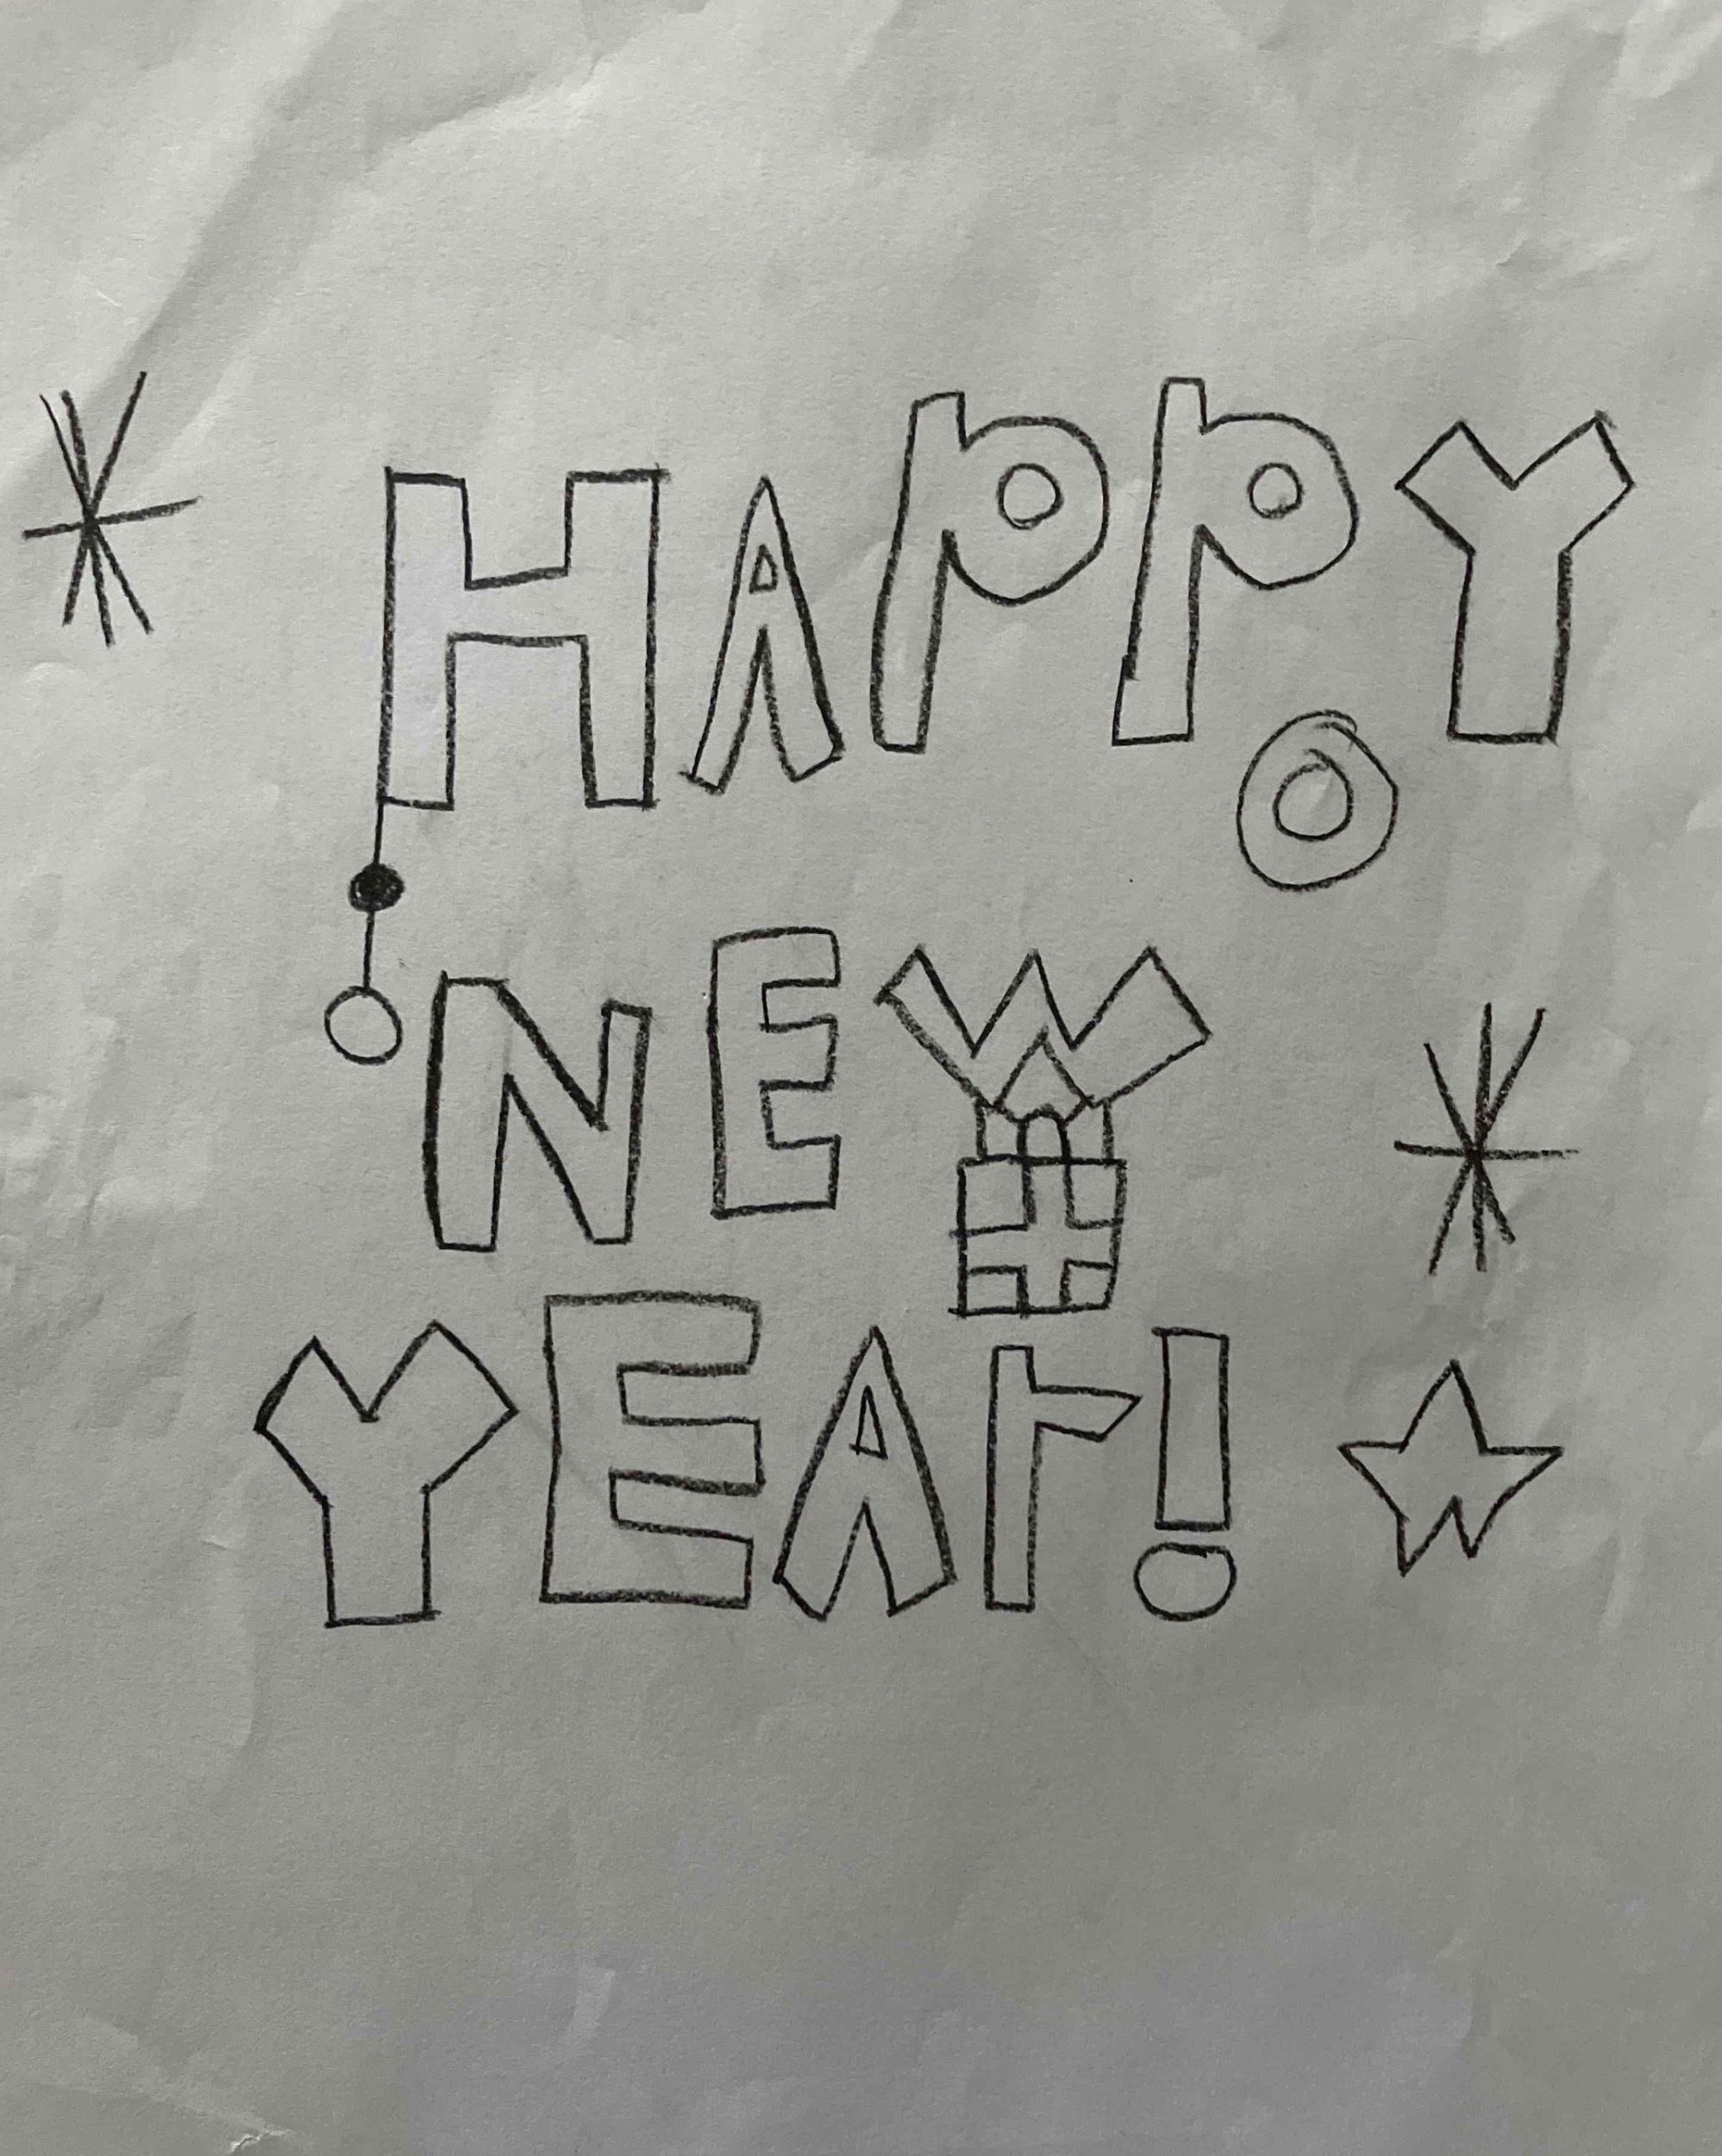 HAPPY
NEW
YEAr!